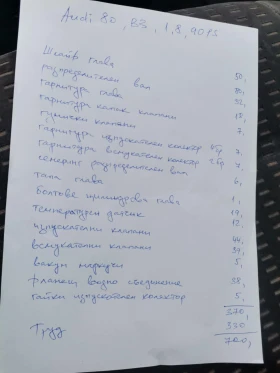 Audi 80, B3, 1,8, 90PS
Шлайф глава 50,
разпределителен вал 80,
гарнитура глава 32,
гарнитура капак клапани 18,
гумички клапани 7,
гарнитура изпускателен колектор 7,
гарнитура всмукателен колектор 7,
семеринг разпределителен вал 6,
тапа глава 1,
болтове глава
температурен датчик 12,
изпускателни клапани 44,
всмукателни клапани
вакум маркучи 5,
фланец водно съединение 38,
гайки изпускателен колектор 5,
370,
Труд 330
700,